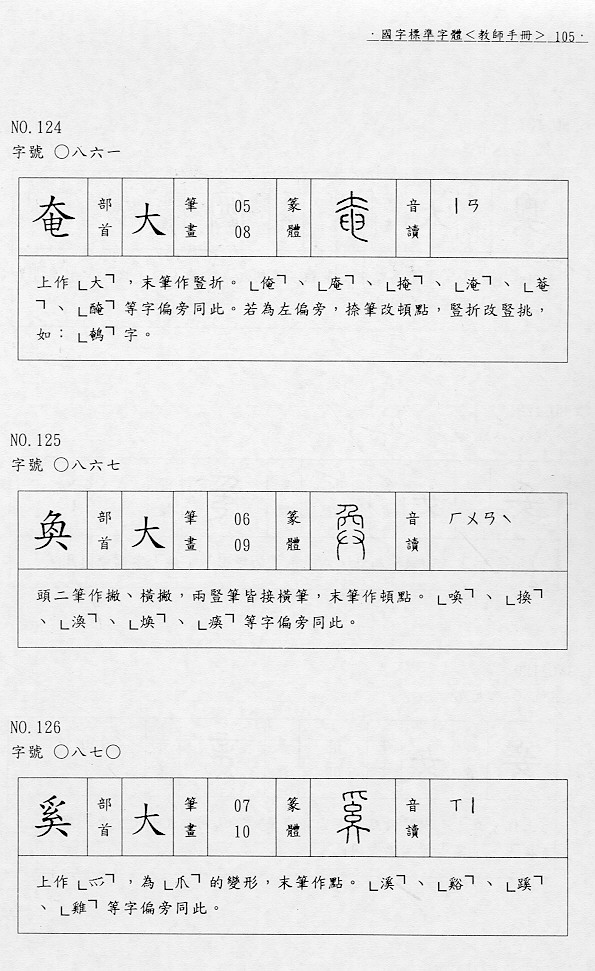 ·國字標準字體＜教師手冊＞ 105·
NO.124
字號 〇八六一
奄 部首 大 筆畫 05 08 篆體 音讀 ㄧㄢ
上作「大」，末筆作豎折。「俺」、「庵」、「掩」、「淹」、「菴
」、「醃」等字偏旁同此。若為左偏旁，捺筆改頓點，豎折改豎挑，
如：「鵪」字。
NO.125
字號 〇八六七
奐 部首 大 筆畫 06 09 篆體 音讀 ㄏㄨㄢˋ
頭二筆作撇、橫撇，兩豎筆皆接橫筆，末筆作頓點。「喚」、「換」
、「渙」、「煥」、「瘓」等字偏旁同此。
NO.126
字號 〇八七〇
奚 部首 大 筆畫 07 10 篆體 音讀 ㄒㄧ
上作「爫」，為「爪」的變形，末筆作點。「溪」、「谿」、「蹊」
、「雞」等字偏旁同此。